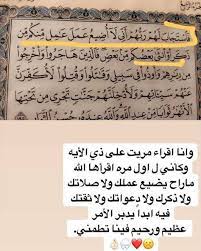 فَٱسْتَجَابَ لَهُمْ رَبُّهُمْ أَنِّى لَآ أُضِيعُ عَمَلَ عَٰمِلٍ مِّنكُم مِّن
ذَكَرٍ أَوْ أُنثَىٰ بَعْضُكُم مِّنۢ بَعْضٍ فَٱلَّذِينَ هَاجَرُوا۟ وَأُخْرِجُوا۟
مِن دِيَٰرِهِمْ وَأُوذُوا۟ فِى سَبِيلِى وَقَٰتَلُوا۟ وَقُتِلُوا۟ لَأُكَفِّرَنَّ
عَنْهُمْ سَيِّـَٔاتِهِمْ وَلَأُدْخِلَنَّهُمْ جَنَّٰتٍ تَجْرِى مِن تَحْتِهَا
وانا اقراء مريت على ذي الآيه
وكأني ل اول مره اقرأها الله
ماراح يضيع عملك ولا صلاتك
ولا ذكرك ولا دعواتك ولا ثقتك
فيه ابداً يدبر الأمر
عظيم ورحيم فينا تطمني.